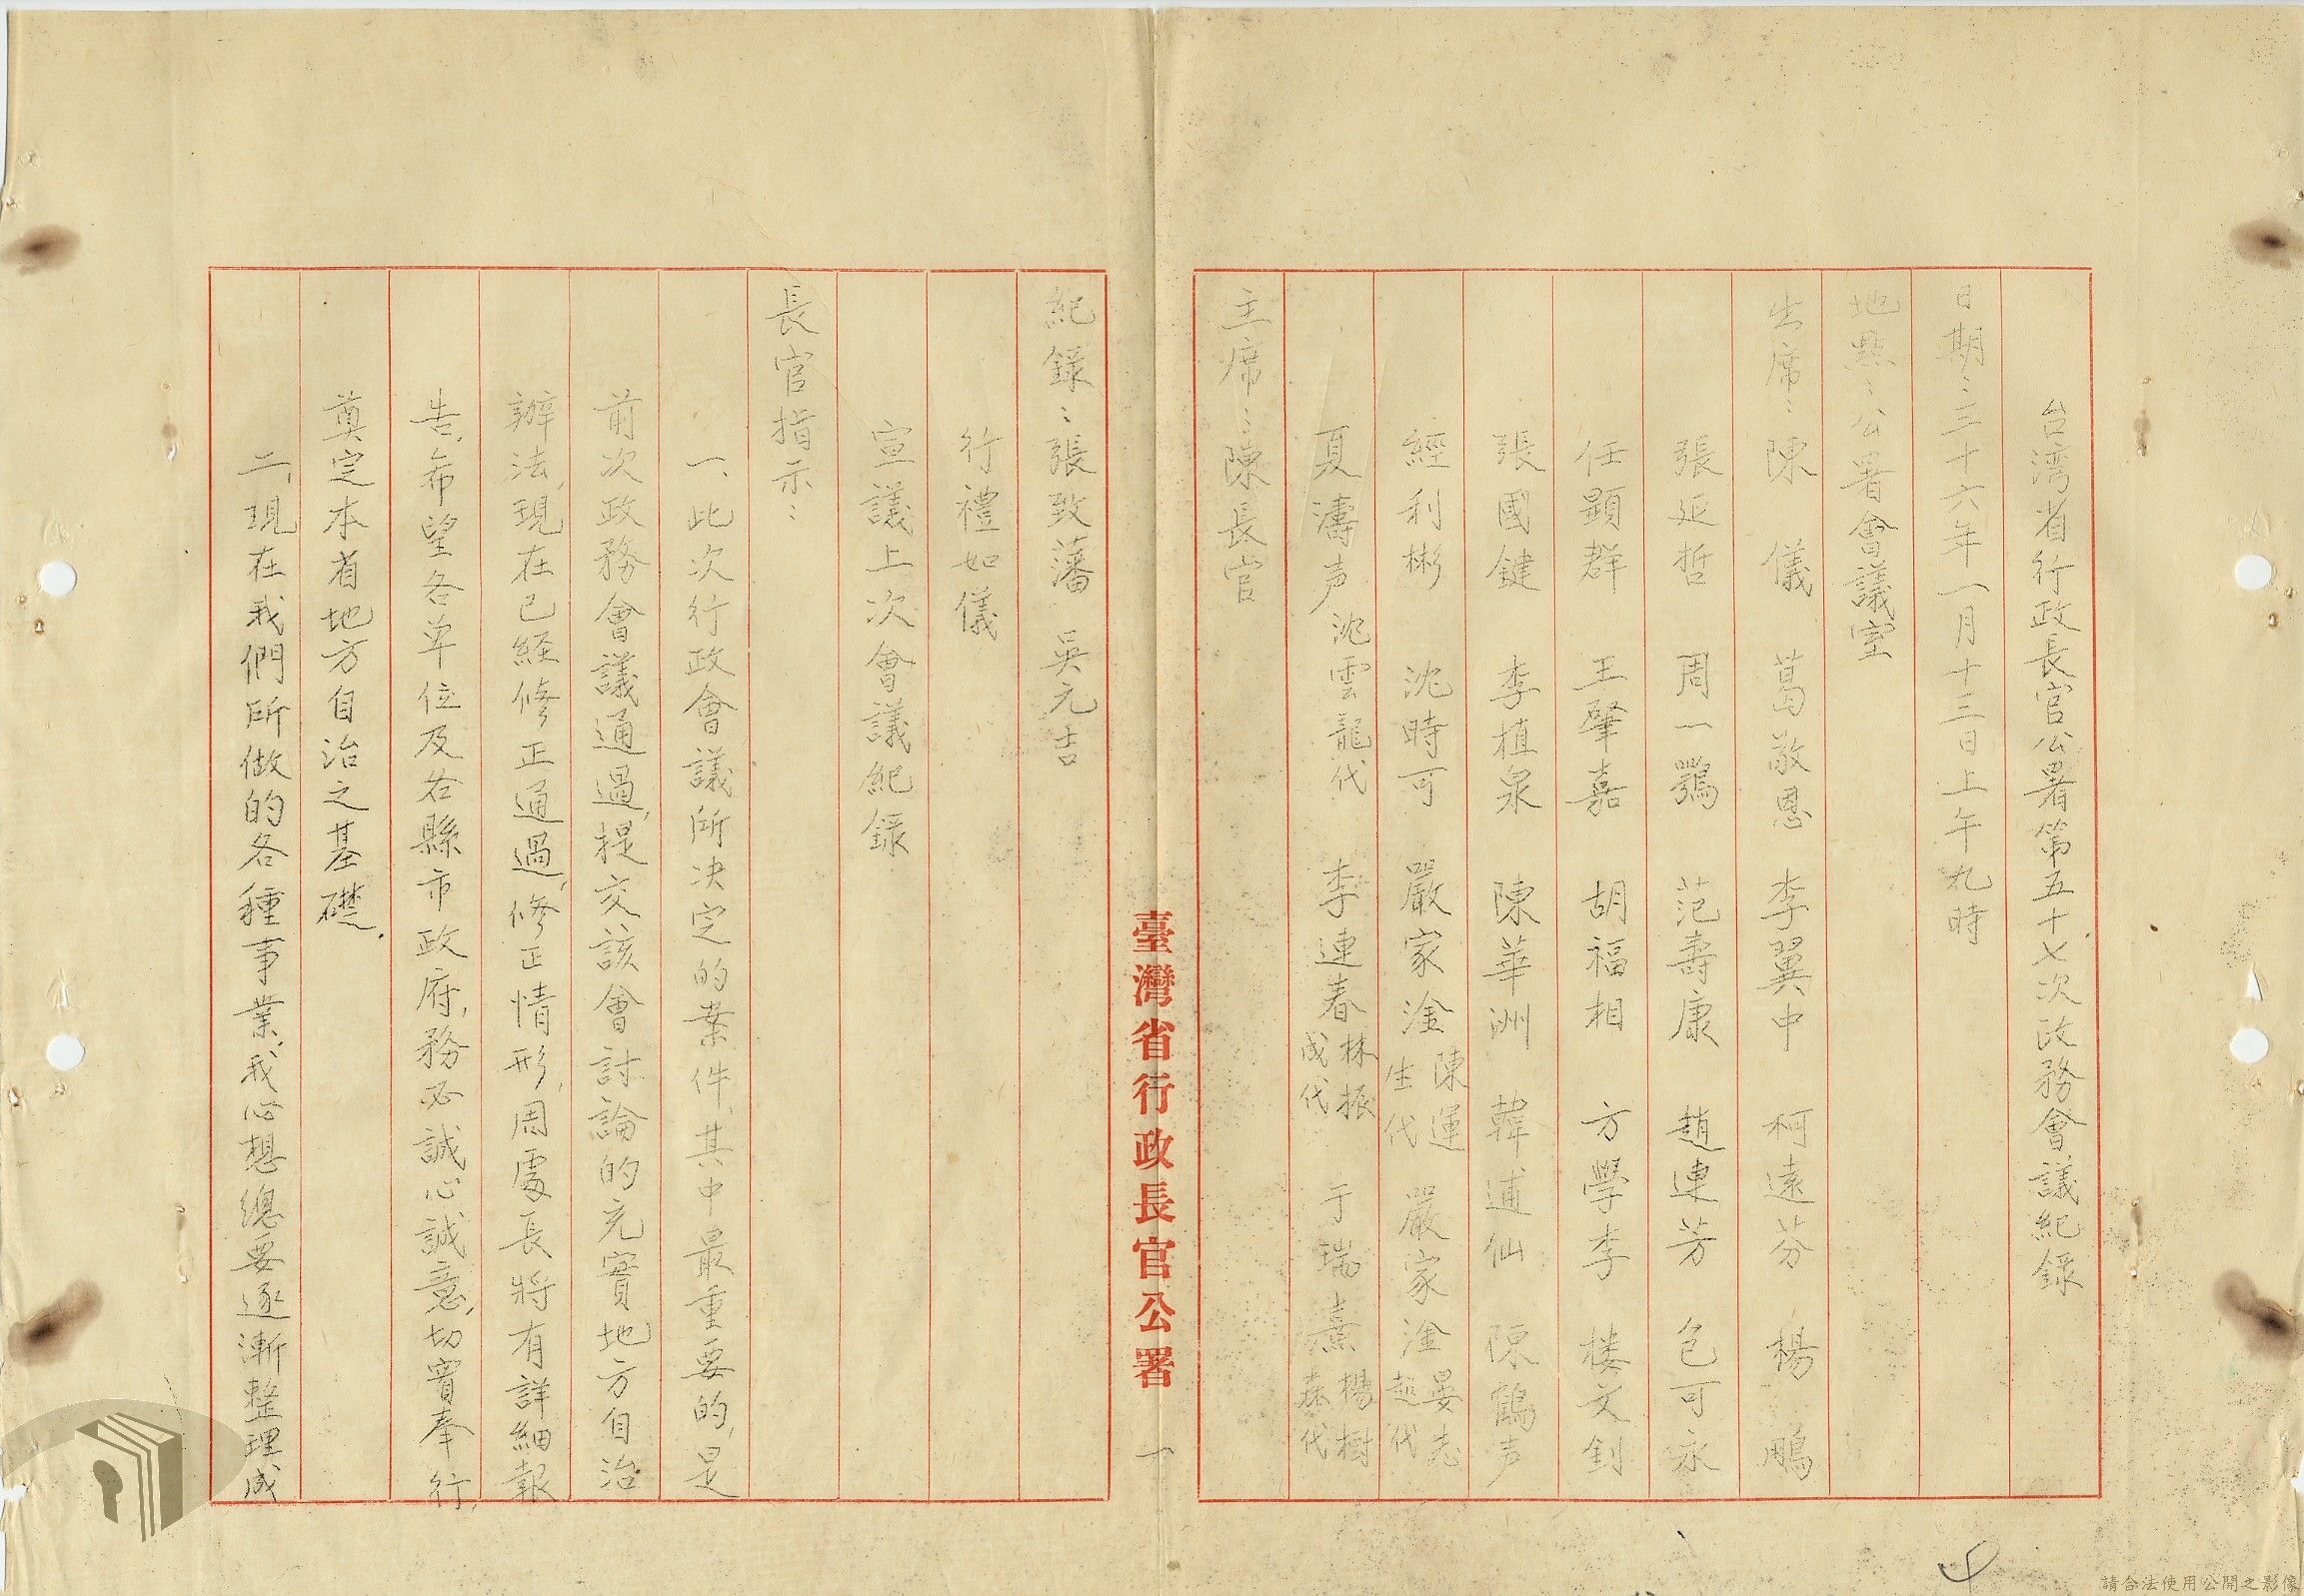 台湾省行政長官公署第五十七次政務會議紀錄
日期：三十六年一月十三日上午九時
地點：公署會議室
出席：陳　儀　葛敬恩　李翼中　柯遠芬　楊　鵬
張延哲　周一鶚　范壽康　趙連芳　包可永
任顯群　王肇嘉　胡福相　方學李　楼文釗
張國鍵　李植泉　陳華洲　韓逋仙　陳鶴声
經利彬　沈時可　嚴家淦　陳運生代　嚴家淦　晏志超代
夏濤声　沈雲龍代　李連春　林振成代　于瑞熹　楊樹森代
主席：陳長官
臺灣省行政長官公署
一
紀錄：張致藩　吳元吉
行禮如儀
宣議上次會議紀錄
長官指示：
一、此次行政會議所决定的案件，其中最重要的，是
前次政務會議通過，提交該會討論的充實地方自治
辦法，現在已經修正通過，修正情形，周處長將有詳細報
告，希望各单位及各縣市政府，務必誠心誠意，切實奉行，
奠定本省地方自治之基礎。
二、現在我們所做的各種事業，我心想總要逐漸整理成
請合法使用公開之影像